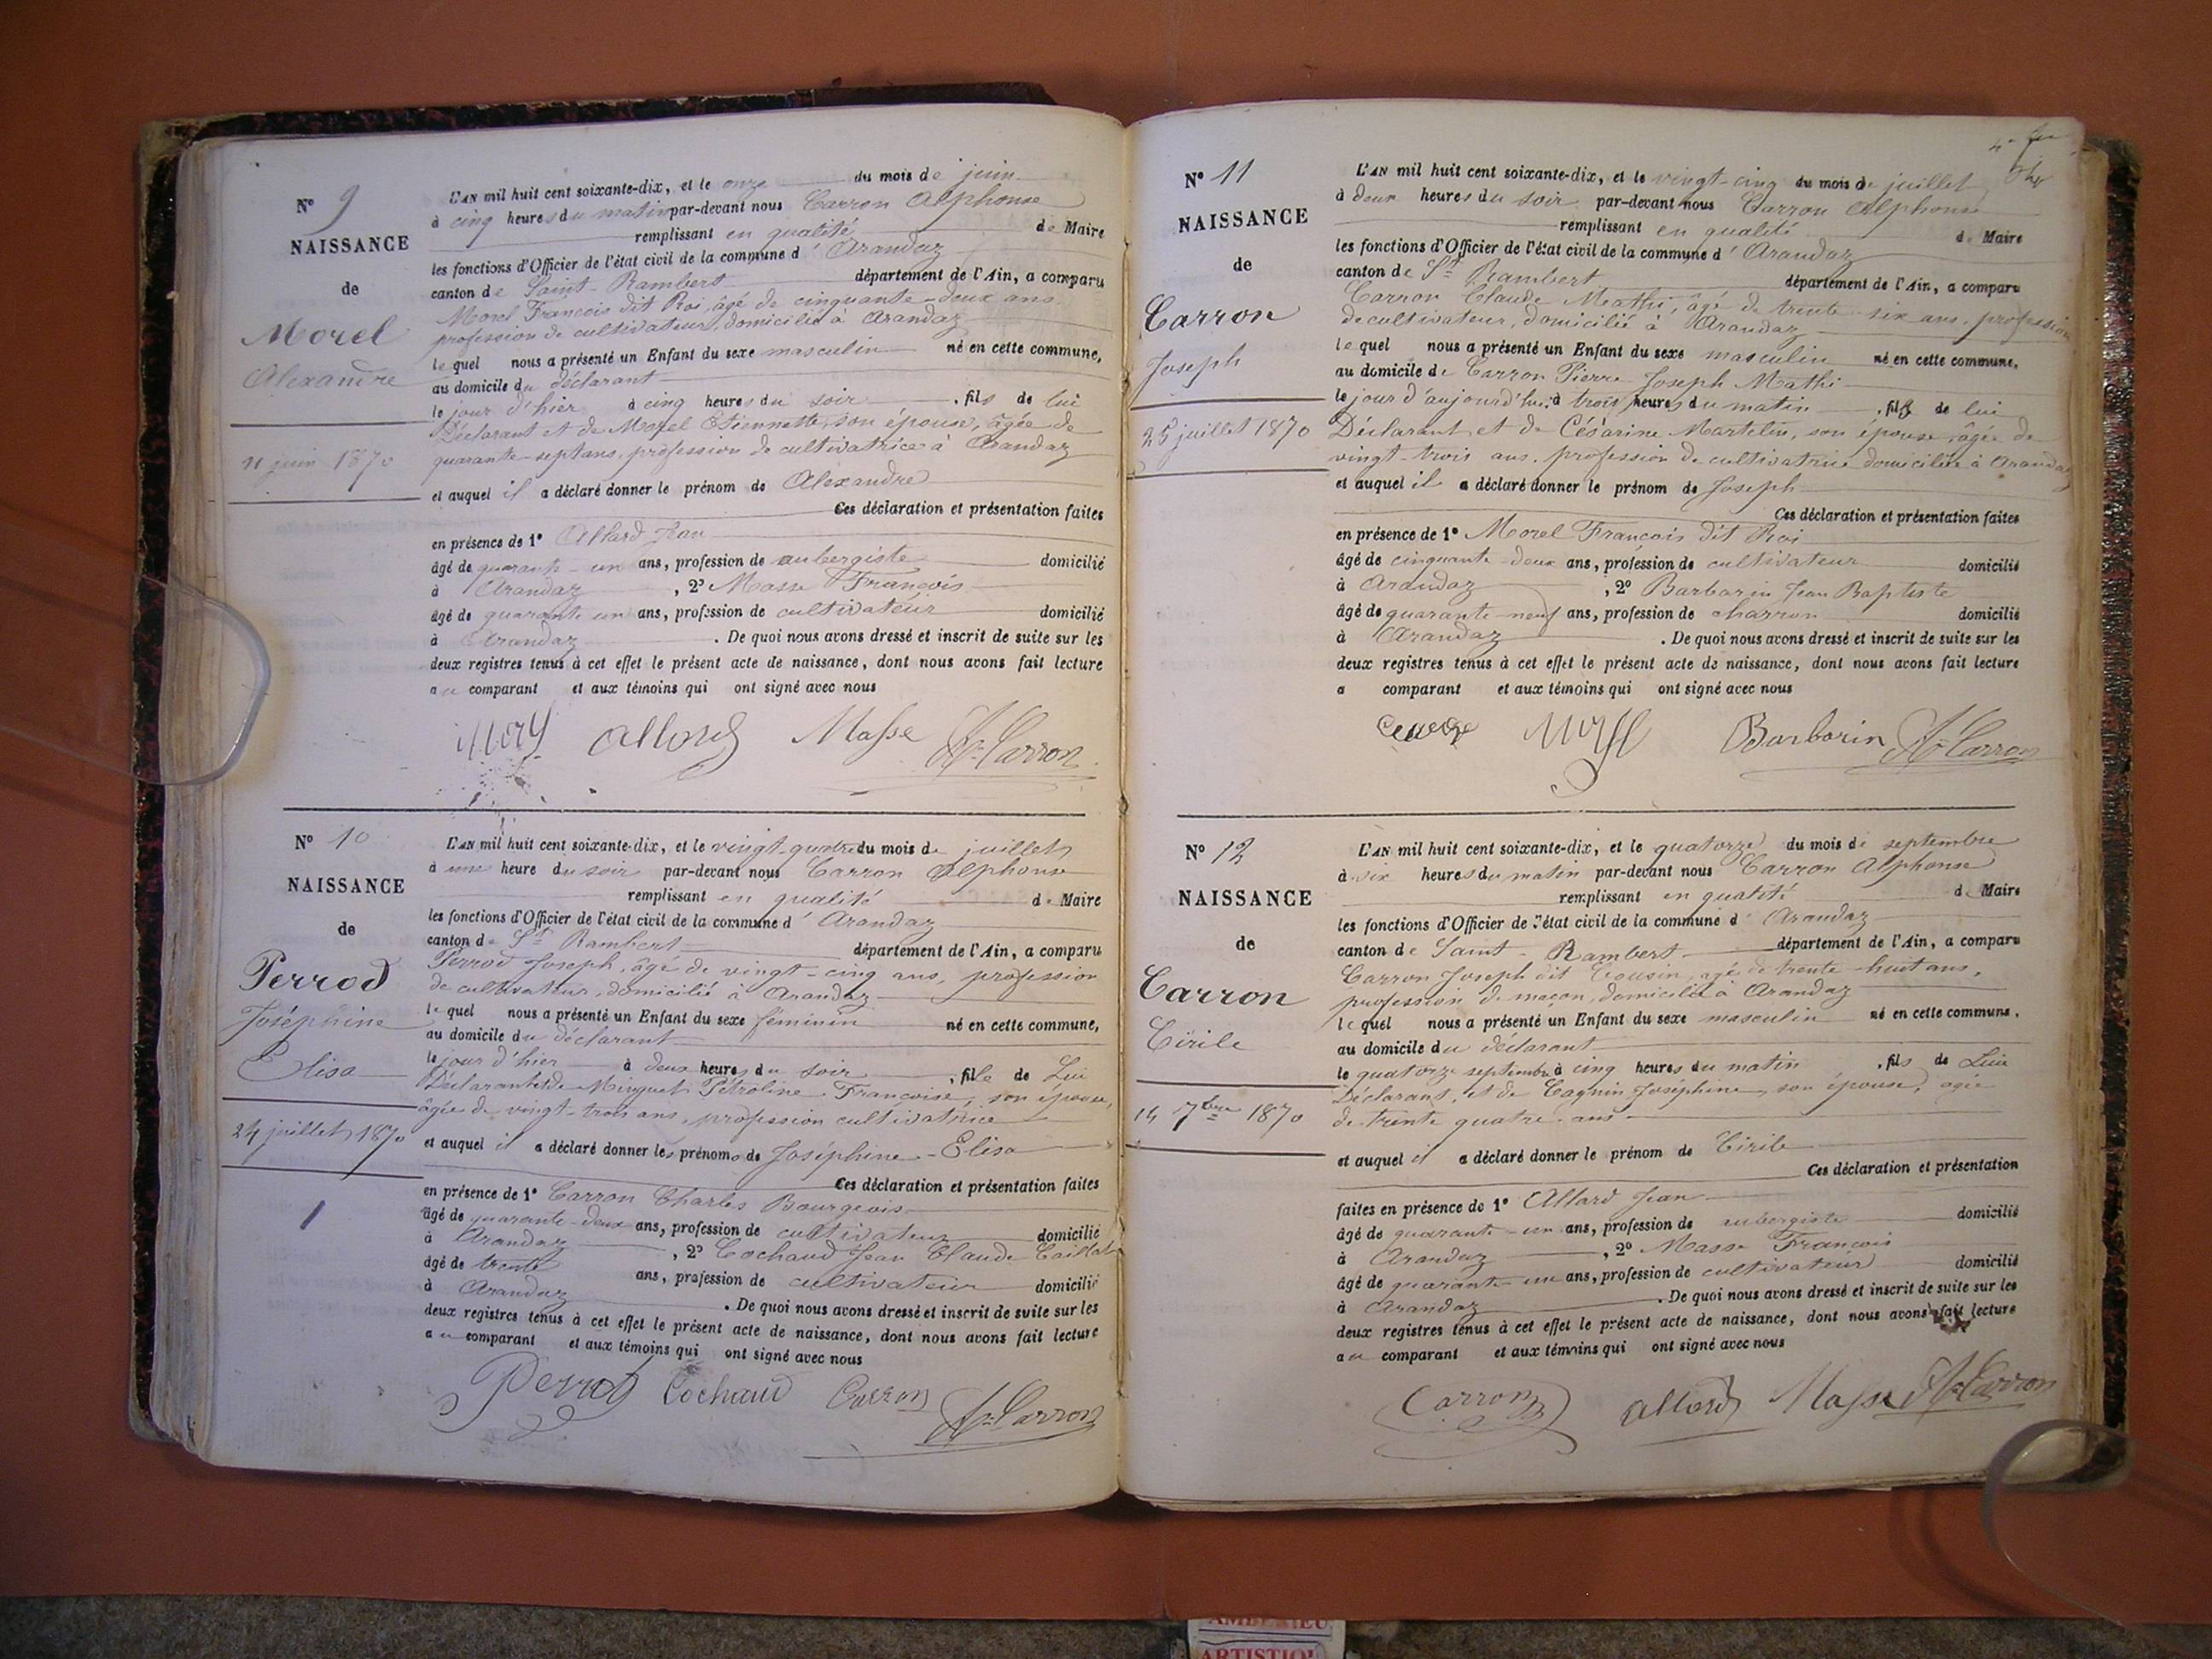 N° 9
NAISSANCE
de
Morel
Alexandre
11 juin 1870
L'AN mil huit cent soixante-dix, et le onze du mois de juin
à cinq heures du matin par-devant nous Carron Alphonse
remplissant en qualité de Maire
les fonctions d'Officier de l'état civil de la commune d'Arandaz
canton de Saint-Rambert département de l'Ain, a comparu
Morel François dit Roi, âgé de cinquante-deux ans
profession de cultivateur, domicilié à Arandaz
lequel nous a présenté un Enfant du sexe masculin né en cette commune,
au domicile du déclarant
le jour d'hier à cinq heures du soir, fils de lui
Déclarant et de Morel Etiennette, son épouse, âgée de
quarante-sept ans, profession de cultivatrice à Arandaz
et auquel il a déclaré donner le prénom de Alexandre
Ces déclaration et présentation faites
en présence de 1° Allard Jean
âgé de quarante-un ans, profession de aubergiste domicilié
à Arandaz, 2° Masse François
âgé de quarante un ans, profession de cultivateur domicilié
à Arandaz. De quoi nous avons dressé et inscrit de suite sur les
deux registres tenus à cet effet le présent acte de naissance, dont nous avons fait lecture
au comparant et aux témoins qui ont signé avec nous
allard Masse Ate Carron
N° 10
NAISSANCE
de
Perrod
Joséphine
Elisa
24 juillet 1870
L'AN mil huit cent soixante-dix, et le vingt-quatre du mois de juillet
à une heure du soir par-devant nous Carron Alphonse
remplissant en qualité de Maire
les fonctions d'Officier de l'état civil de la commune d'Arandaz
canton de St Rambert département de l'Ain, a comparu
Perrod Joseph, âgé de vingt-cinq ans, profession
de cultivateur, domicilié à Arandaz
lequel nous a présenté un Enfant du sexe féminin né en cette commune,
au domicile du déclarant
le jour d'hier à deux heures du soir, fille de Lui
Déclarant et de Minguet Pétroline Françoise, son épouse,
âgée de vingt-trois ans, profession cultivatrice
et auquel il a déclaré donner les prénoms de Joséphine-Elisa
Ces déclaration et présentation faites
en présence de 1° Carron Charles Bourgeois
âgé de quarante-deux ans, profession de cultivateur domicilié
à Arandaz, 2° Cochaud Jean Claude Caillat
âgé de trente ans, profession de cultivateur domicilié
à Arandaz. De quoi nous avons dressé et inscrit de suite sur les
deux registres tenus à cet effet le présent acte de naissance, dont nous avons fait lecture
au comparant et aux témoins qui ont signé avec nous
Perrod Cochaud Carron Ate Carron
N° 11
NAISSANCE
de
Carron
Joseph
25 juillet 1870
L'AN mil huit cent soixante-dix, et le vingt-cinq du mois de juillet
à deux heures du soir par-devant nous Carron Alphonse
remplissant en qualité de Maire
les fonctions d'Officier de l'état civil de la commune d'Arandaz
canton de St Rambert département de l'Ain, a comparu
Carron Claude Mathi, âgé de trente-six ans, profession
de cultivateur, domicilié à Arandaz
lequel nous a présenté un Enfant du sexe masculin né en cette commune,
au domicile de Carron Pierre Joseph Mathi
le jour d'aujourd'hui à trois heures du matin, fils de lui
Déclarant et de Césarine Martelin, son épouse, âgée de
vingt-trois ans, profession de cultivatrice domiciliée à Arandaz
et auquel il a déclaré donner le prénom de Joseph
Ces déclaration et présentation faites
en présence de 1° Morel François dit Roi
âgé de cinquante-deux ans, profession de cultivateur domicilié
à Arandaz, 2° Barbarin Jean Baptiste
âgé de quarante neuf ans, profession de charron domicilié
à Arandaz. De quoi nous avons dressé et inscrit de suite sur les
deux registres tenus à cet effet le présent acte de naissance, dont nous avons fait lecture
a comparant et aux témoins qui ont signé avec nous
Barbarin Ate Carron
N° 12
NAISSANCE
de
Carron
Cirile
14 7bre 1870
L'AN mil huit cent soixante-dix, et le quatorze du mois de septembre
à six heures du matin par-devant nous Carron Alphonse
remplissant en qualité de Maire
les fonctions d'Officier de l'état civil de la commune d'Arandaz
canton de Saint-Rambert département de l'Ain, a comparu
Carron Joseph dit Cousin, agé de trente-huit ans,
profession de maçon, domicilié à Arandaz
lequel nous a présenté un Enfant du sexe masculin né en cette commune,
au domicile du déclarant
le quatorze septembre à cinq heures du matin, fils de Lui
Déclarant, et de Cagnin Joséphine, son épouse, agée
de trente quatre ans
et auquel il a déclaré donner le prénom de Cirile
Ces déclaration et présentation
faites en présence de 1° Allard Jean
âgé de quarante-un ans, profession de aubergiste domicilié
à Arandaz, 2° Masse François
âgé de quarante-un ans, profession de cultivateur domicilié
à Arandaz. De quoi nous avons dressé et inscrit de suite sur les
deux registres tenus à cet effet le présent acte de naissance, dont nous avons fait lecture
au comparant et aux témoins qui ont signé avec nous
Carron allard Masse Ate Carron